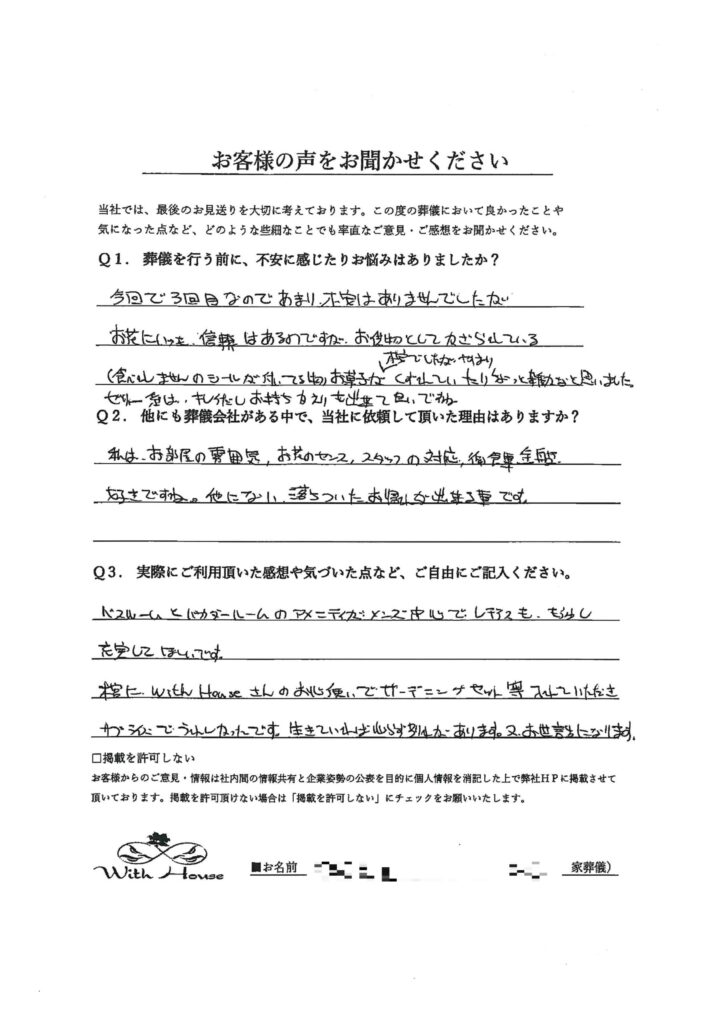 お客様の声をお聞かせください
当社では、最後のお見送りを大切に考えております。この度の葬儀において良かったことや
気になった点など、どのような些細なことでも率直なご意見・ご感想をお聞かせください。
Q1. 葬儀を行う前に、不安に感じたりお悩みはありましたか?
今回で3回目なのであまり、不安はありませんでしたが
お花にいつも、信頼はあるのですが、お供物としてかざられている
(食べれませんのシールが付いてる物)お草子が くずれていたり ちょっと残念だなと思いました。
ゼリー系は、キレイだしお持ちかえりも出来て良いですね
Q2. 他にも葬儀会社がある中で、当社に依頼して頂いた理由はありますか?
私は、お部屋の雰囲気,お花のセンス,スタッフの対応,御食事全般
好きですね。他にない、落ちついたお別れが出来る事です。
Q3. 実際にご利用頂いた感想や気づいた点など、ご自由にご記入ください。
バスルームとパウダールームのアメニティがメンズ中心でレディスも、もう少し
充実してほしいです。
棺に With Houseさんのお心使いでガーデニングセット等入れていただき
サプライズでうれしかったです。生きていれば必ず別れがあります。又、お世話になります。
□掲載を許可しない
お客様からのご意見・情報は社内間の情報共有と企業姿勢の公表を目的に個人情報を消記した上で弊社HPに掲載させて
頂いております。掲載を許可頂けない場合は「掲載を許可しない」にチェックをお願いいたします。
With House
■お名前 家葬儀)